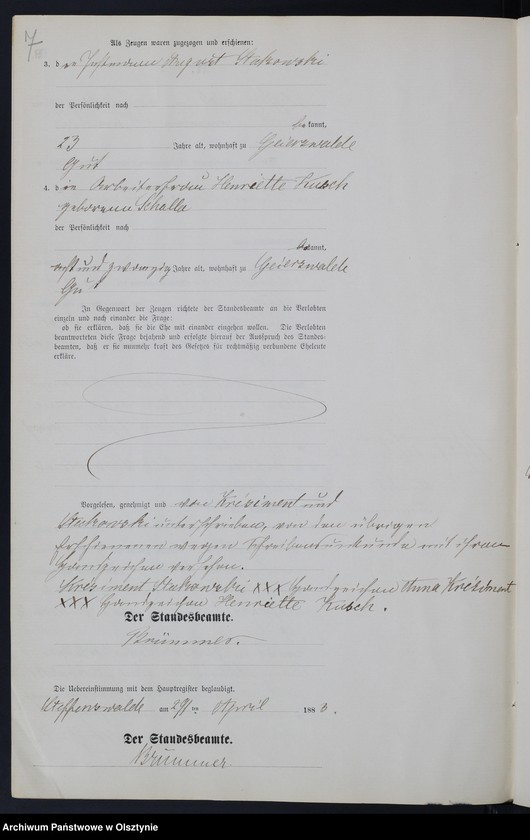 7
Als Zeugen waren zugezogen und erschienen:
3. der August Stukowski
der Persönlichkeit nach
bekannt,
23 Jahre alt, wohnhaft zu Geierswalde
Gut
4. die Arbeiterfrau Henriette Kusch
geborene Schalla
der Persönlichkeit nach
bekannt,
acht und zwanzig Jahre alt, wohnhaft zu Geierswalde
Gut
In Gegenwart der Zeugen richtete der Standesbeamte an die Verlobten
einzeln und nach einander die Frage:
ob sie erklären, daß sie die Ehe mit einander eingehen wollen. Die Verlobten
beantworteten diese Frage bejahend und erfolgte hierauf der Ausspruch des Standes-
beamten, daß er sie nunmehr kraft des Gesetzes für rechtmäßig verbundene Eheleute
erkläre.
Vorgelesen, genehmigt und von Krisiment und
Stukowski unterschrieben, von den übrigen
Erschienenen wegen Schreibensunkunde mit ihren
Handzeichen versehen.
Krisiment Stukowski XXX Handzeichen Anna Krisiment
XXX Handzeichen Henriette Kusch.
Der Standesbeamte.
Brümmer.
Die Uebereinstimmung mit dem Hauptregister beglaubigt.
am 29 ten April 188
Der Standesbeamte.
Brümmer
Archiwum Państwowe w Olsztynie